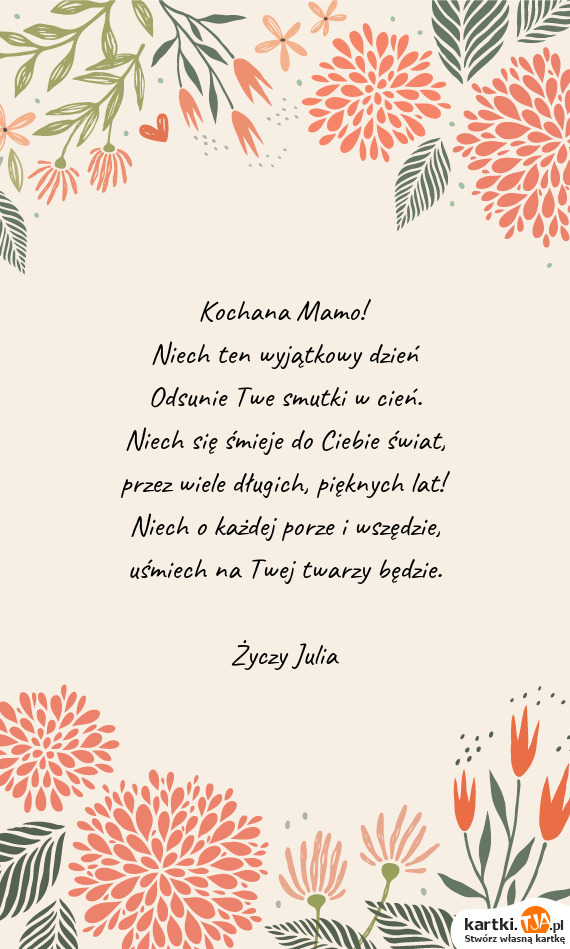 Kochana Mamo!
Niech ten wyjątkowy dzień
Odsunie Twe smutki w cień.
Niech się śmieje do Ciebie świat,
przez wiele długich, pięknych lat!
Niech o każdej porze i wszędzie,
uśmiech na Twej twarzy będzie.
Życzy Julia
kartki.TJA.pl
Stwórz własną kartkę